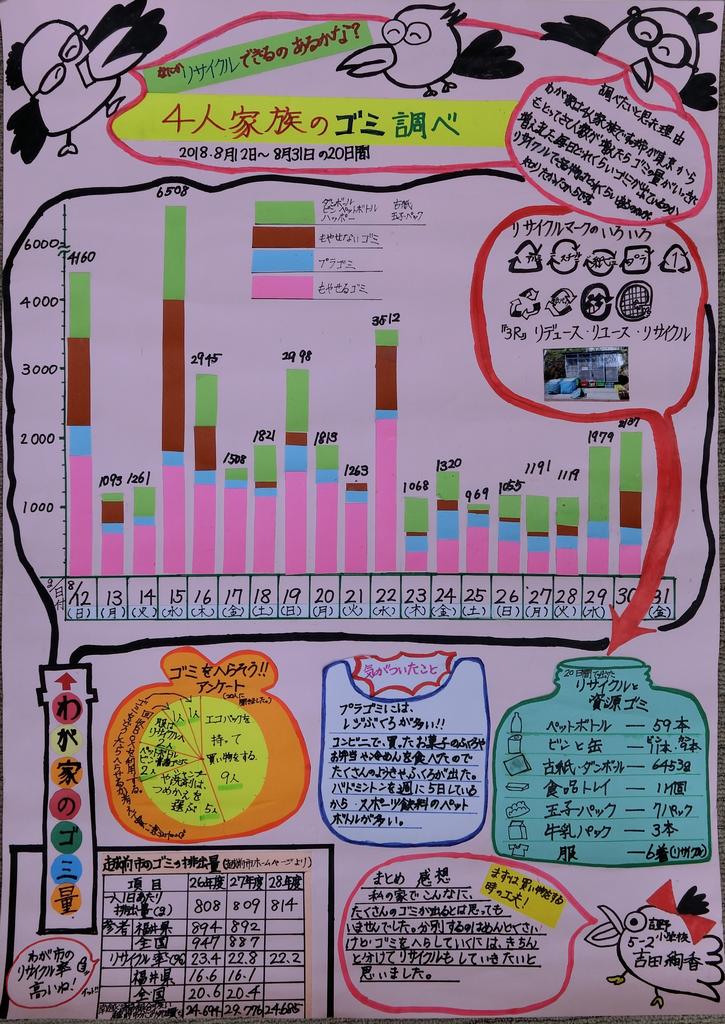 リサイクルできるのあるかな?
4人家族のゴミ調べ
2018.8月12日〜8月31日の20日間
調べたいと思った理由
わが家は4人家族で
リサイクルマークのいろいろ
『3R』リデュース・リユース・リサイクル
ダンボール
ビン ペットボトル
古紙
玉子パック
もやせないゴミ
プラゴミ
もやせるゴミ
6000
4000
3000
2000
1000
4160
1093
1261
6508
2945
1508
1821
2998
1813
1263
3512
1068
1320
969
1055
1191
1119
1979
2137
日付
8/12 13 14 15 16 17 18 19 20 21 22 23 24 25 26 27 28 29 30 31
(日) (月) (火) (水) (木) (金) (土) (日) (月) (火) (水) (木) (金) (土) (日) (月) (火) (水) (木) (金)
わが家のゴミ量
ゴミをへらそう!!
アンケート
エコバックを
持って
買い物をする
9人
つめかえを
選ぶ 5人
2人
気がついたこと
プラゴミには、
レジぶくろが多い!!
コンビニで、買ったお菓子のふくろや
お弁当や冷めんを食べたので
たくさんのようきやふくろが出た。
バドミントンを週に5日している
から、スポーツ飲料のペット
ボトルが多い。
20日間で出た
リサイクルと
資源ゴミ
ペットボトル ― 59本
ビンと缶
古紙・ダンボール ― 6453g
食品トレイ ― 11個
玉子パック ― 7パック
牛乳パック ― 3本
服 ― 6着(リサイクル)
越前市のゴミの排出量(越前市ホームページより)
項目 26年度 27年度 28年度
一人1日あたり
排出量(g) 808 809 814
参考 福井県 894 892
全国 947 887
リサイクル率(%) 23.4 22.8 22.2
福井県 16.6 16.1
全国 20.6 20.4
わが市の
リサイクル率
高いね!
まとめ 感想
私の家でこんなに、
たくさんのゴミが出るとは思っても
いませんでした。分別するのはめんどくさい
けど、ゴミをへらしていくには、きちん
と分けてリサイクルもしていきたいと
思いました。
まずは買い物をする
時の工夫!
吉野
小学校
5-2
吉田絢香